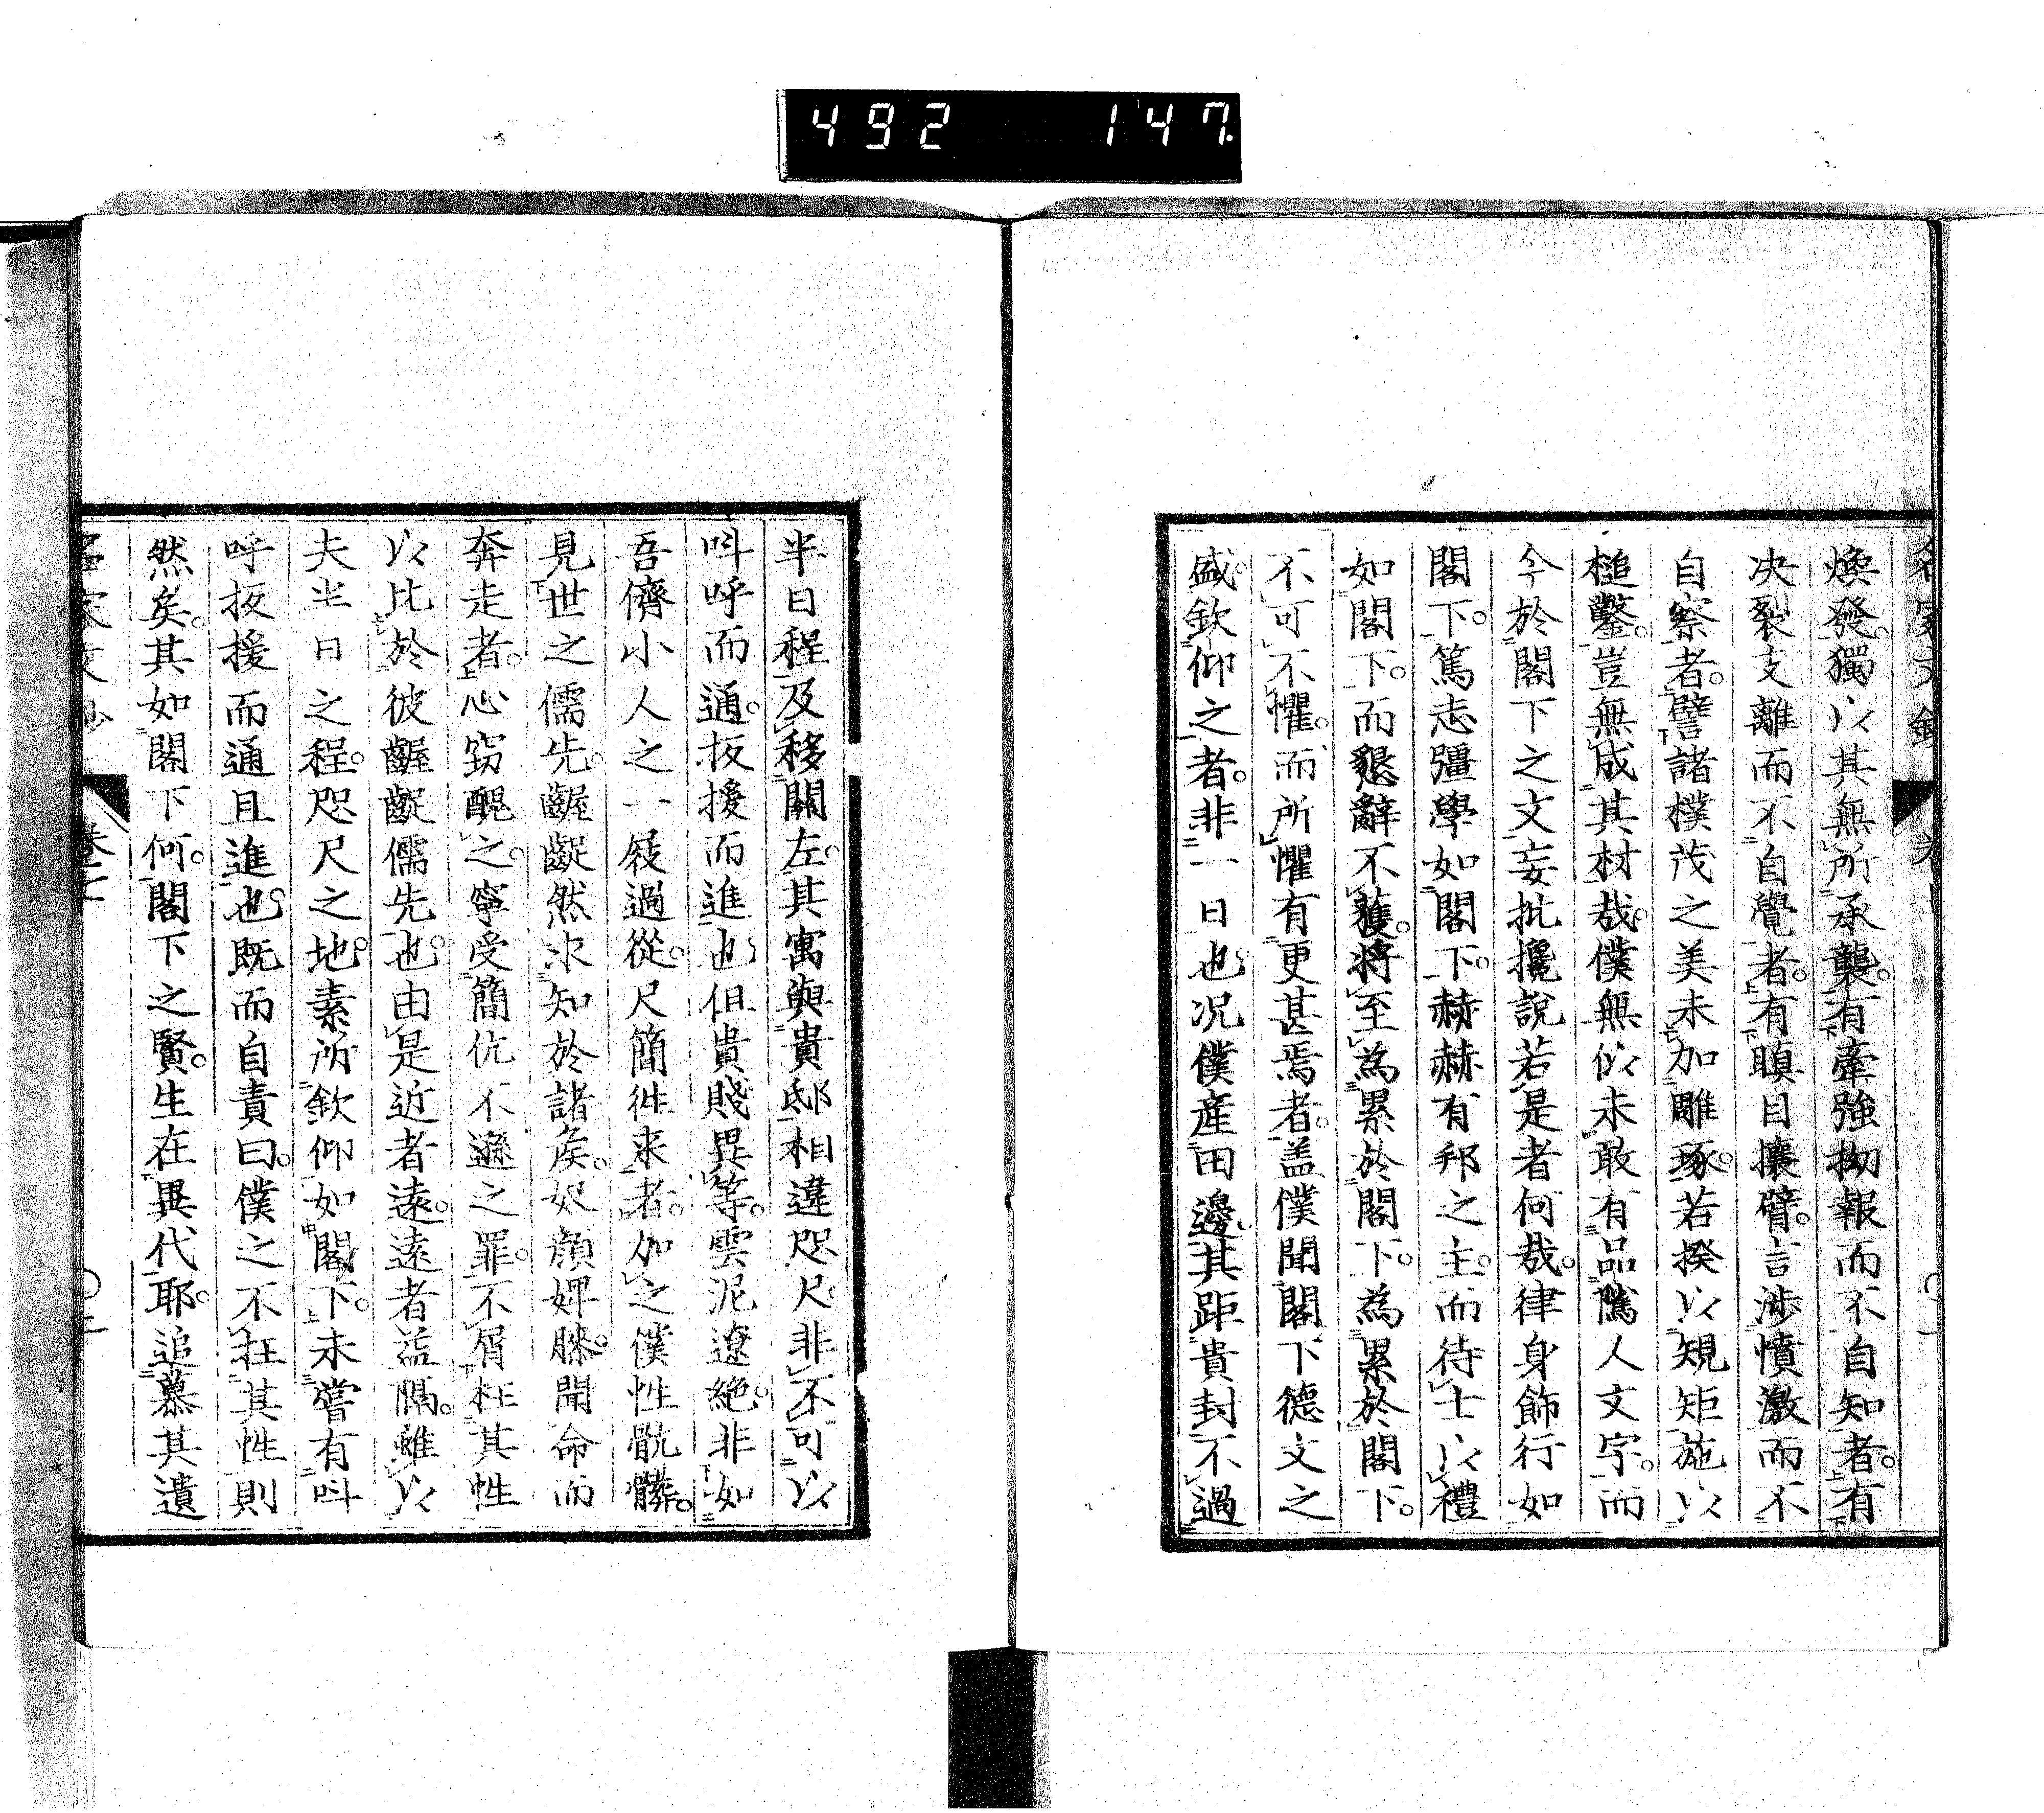 492 147
煥發。獨以其無所承襲。有牽強拗報而不自知者。有
决裂支離而不自覺者。有瞋目攘臂。言涉憤激而不
自察者。譬諸樸茂之美未加雕琢。若揆以規矩施以
槌鑿。豈無成其材哉。僕無似未敢有品隲人文字。而
今於閣下之文妄批攙說若是者何哉。律身飾行如
閣下。篤志彊學如閣下。赫赫有邦之主。而待士以禮
如閣下。而懇辭不獲。將至為累於閣下。為累於閣下。
不可不懼。而所懼有更甚焉者。盖僕聞閣下德文之
盛。欽仰之者。非一日也。况僕產田邊。其距貴封不過
半日程及移關左。其寓與貴邸相違咫尺。非不可以
呌呼而通。扳援而進也。但貴賤異等。雲泥遼絶。非如
吾儕小人之一屐過從。尺簡徃来者。加之僕性骯髒。
見世之儒先。齷齪然求知於諸矦。奴顏婢膝。聞命而
奔走者。心窃醜之。寧受簡伉不遜之罪。不屑枉其性
以比於彼齷齪儒先也。由是近者遠。遠者益隔。雖以
夫半日之程。咫尺之地。素所欽仰如閣下。未嘗有呌
呼扳援而通且進也。既而自責曰。僕之不枉其性則
然矣。其如閣下何。閣下之賢。生在異代耶。追慕其遺
名家文抄 卷七